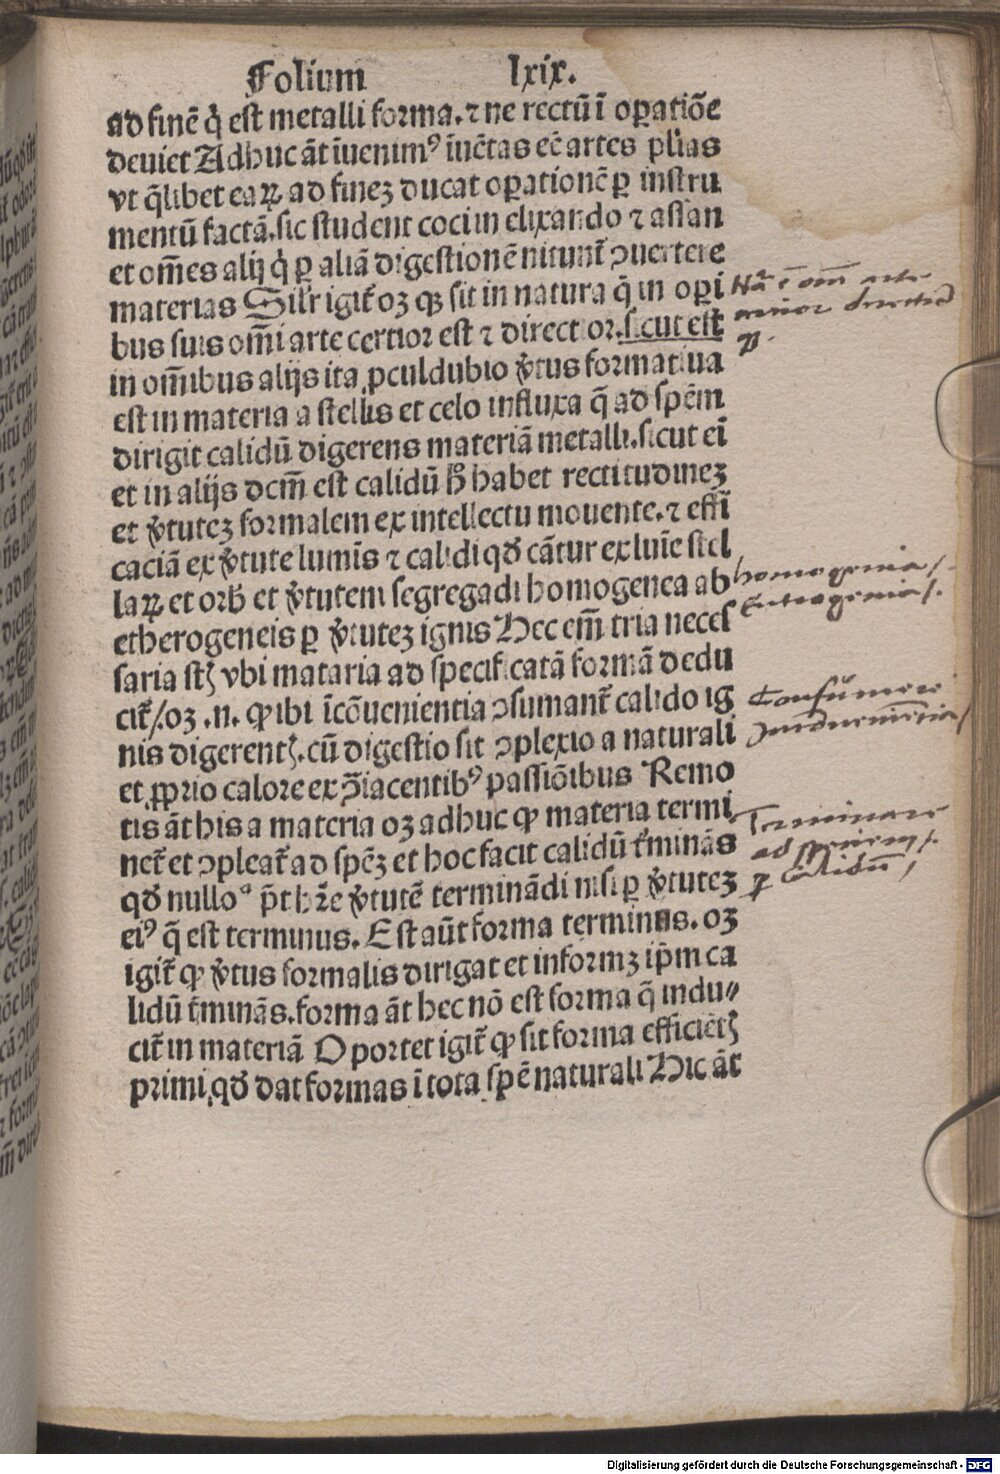 Folium lxix.
ad finē q̇ est metalli forma. ⁊ ne rectū ī oꝑatiōe
deuiet Adhuc āt īuenimꝰ īuētas eē artes pl'ias
vt q̄libet eaꝝ ad finez ducat oꝑationē ꝑ instru
mentū factā. sic student coci in elixando ⁊ assan
et om̄es alij q̇ ꝑ aliā digestionē nitunt̄ ꝯuertere
materias Sil'r igit̄ oꝫ ꝙ sit in natura q̄ in oꝑi
bus suis om̄i arte certior est ⁊ directior. sicut est
in om̄ibus alijs ita ꝓculdubio v̄tus formatiua
est in materia a stellis et celo influxa q̄ ad spēm
dirigit calidū digerens materiā metalli. sicut ei̅
et in alijs dcm̄ est calidū h̊ habet rectitudinez
et v̄tutez formalem ex intellectu mouente. ⁊ effi
caciā ex v̄tute lumīs ⁊ calidi qd̄ cātur ex luīe stel
laꝝ et orb̄ et v̄tutem segregādi homogenea ab
etherogeneis ꝑ v̄tutez ignis Hec em̄ tria neces
saria st̄ vbi mataria ad specificatā formā dedu
cit̄/. oꝫ .n. ꝙ ibi īcōuenientia ꝯsumant̄ calido ig
nis digerent̄. cū digestio sit ꝯplexio a naturali
et ꝓprio calore ex p̄iacentibꝰ passiōibus Remo
tis āt his a materia oꝫ adhuc ꝙ materia termi
net̄ et ꝯpleat̄ ad spēz et hoc facit calidū t̄minās
qd̄ nullo° p̄t h̄re v̄tutē terminādi nisi ꝑ v̄tutez
eiꝰ q̄ est terminus. Est aūt forma terminus. oꝫ
igit̄ ꝙ v̄tus formalis dirigat et informꝫ ip̄m ca
lidū t̄minās. forma āt hec nō est forma q̄ indu⸗
cit̄ in materiā Oportet igit̄ ꝙ sit forma efficiēt̄
primi. qd̄ dat formas ī tota spē naturali Hic āt
homogenia /.
Entrogenia /.
Consumere
Terminare
ad speciem /.
ꝑ Calidum /
Digitalisierung gefördert durch die Deutsche Forschungsgemeinschaft - DFG